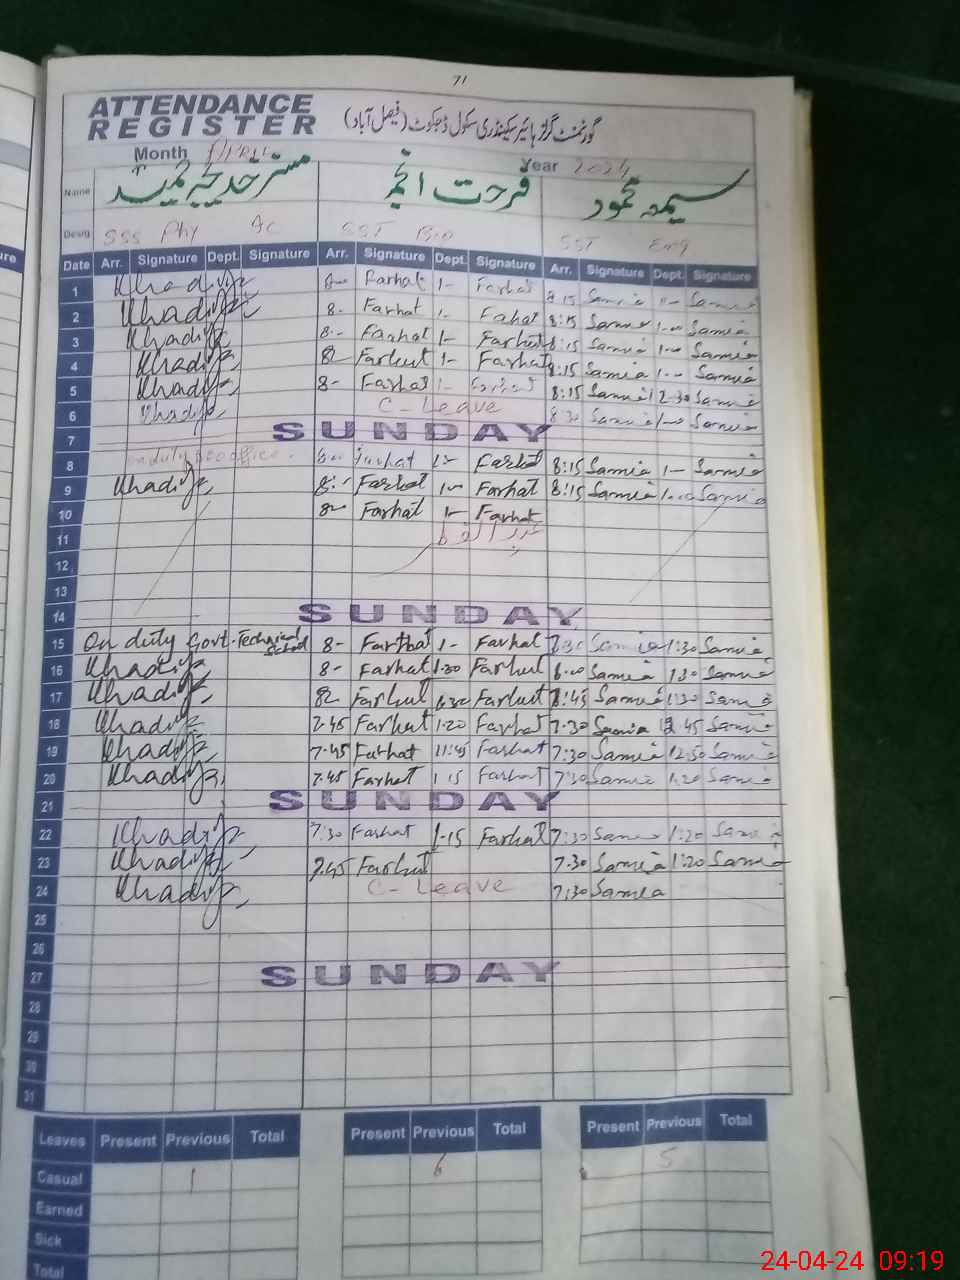 71
ATTENDANCE
REGISTER
گورنمنٹ گرلز ہائیر سیکنڈری سکول ڈجکوٹ (فیصل آباد)
Month April Year 2024
Name مسز خدیجہ فرحت انجم سیمعہ محمود
Desig SSS Phy SST Bio SST Eng
Date Arr. Signature Dept. Signature Arr. Signature Dept. Signature Arr. Signature Dept. Signature
1 Khadija Farhat 1- Farhat 8:15 Samia Samia
2 Khadija 8- Farhat 1- Farhat 8:15 Samia 1-00 Samia
3 Khadija 8- Farhat 1- Farhat 8:15 Samia 1-00 Samia
4 Khadija 8- Farhat 1- Farhat 8:15 Samia 1-00 Samia
5 Khadija 8- Farhat 1- Farhat 8:15 Samia 12-30 Samia
6 Khadija C-Leave 8:30 Samia 1-00 Samia
7 SUNDAY
8 on duty 8- Farhat Farhat 8:15 Samia 1- Samia
9 Khadija 8- Farhat 1- Farhat 8:15 Samia Samia
10 8- Farhat 1- Farhat
11 عید الفطر
12
13
14 SUNDAY
15 On duty Govt. Technical School 8- Farhat 1- Farhat 7:30 Samia 1:30 Samia
16 Khadija 8- Farhat 1:30 Farhat 8-00 Samia 1:30 Samia
17 Khadija 8- Farhat Farhat Samia 1:30 Samia
18 Khadija 7-45 Farhat 1-20 Farhat 7-30 Samia 12 45 Samia
19 Khadija 7-45 Farhat 11:45 Farhat 7:30 Samia 12:50 Samia
20 Khadija 7.45 Farhat 1 15 Farhat 7:30 Samia 1:20 Samia
21 SUNDAY
22 Khadija 7:30 Farhat 1-15 Farhat 7:30 Samia 1:20 Samia
23 Khadija 7.45 Farhat 7.30 Samia 1:20 Samia
24 Khadija C-Leave 7:30 Samia
25
26
27 SUNDAY
28
29
30
31
Leaves Present Previous Total Present Previous Total Present Previous Total
Casual 1 6 5
Earned
Sick
Total
24-04-24 09:19